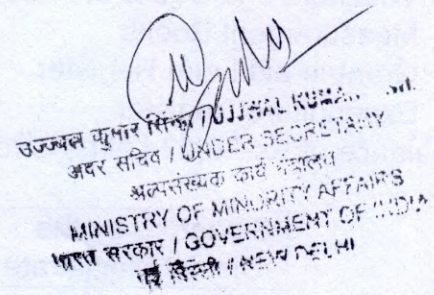 उज्जवल कुमार सिन्हा / UJJWAL KUMA
अवर सचिव / UNDER SECRETARY
अल्पसंख्यक कार्य मंत्रालय
MINISTRY OF MINORITY AFFAIRS
भारत सरकार / GOVERNMENT OF INDIA
नई दिल्ली / NEW DELHI